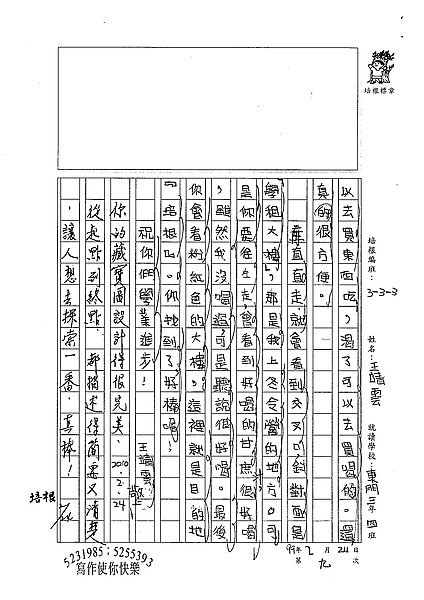 培根標章
培根編班：3-3-3
姓名：王靖雲
就讀學校：東門三年四班
99年2月24日
第九次
以去買東西吃，渴了可以去買喝的。還
真的很方便。
直直走就會看到交叉口，斜對面是
學租大樓，那是我上冬令營的地方。可
是你要往左走，會看到好喝的甘蔗汁，很好喝
，雖然我沒喝過，可是聽說很好喝。最後
你會看粉紅色的大樓，這裡就是目的地
「培根」。你找到了好棒喔！
祝你們學業進步！
王靖雲敬上
2010.2.24
你的藏寶圖設計得很完美，
從起點到終點，都描述得簡要又清楚
，讓人想去探索一番，真棒！
培根
5231985；5255393
寫作使你快樂